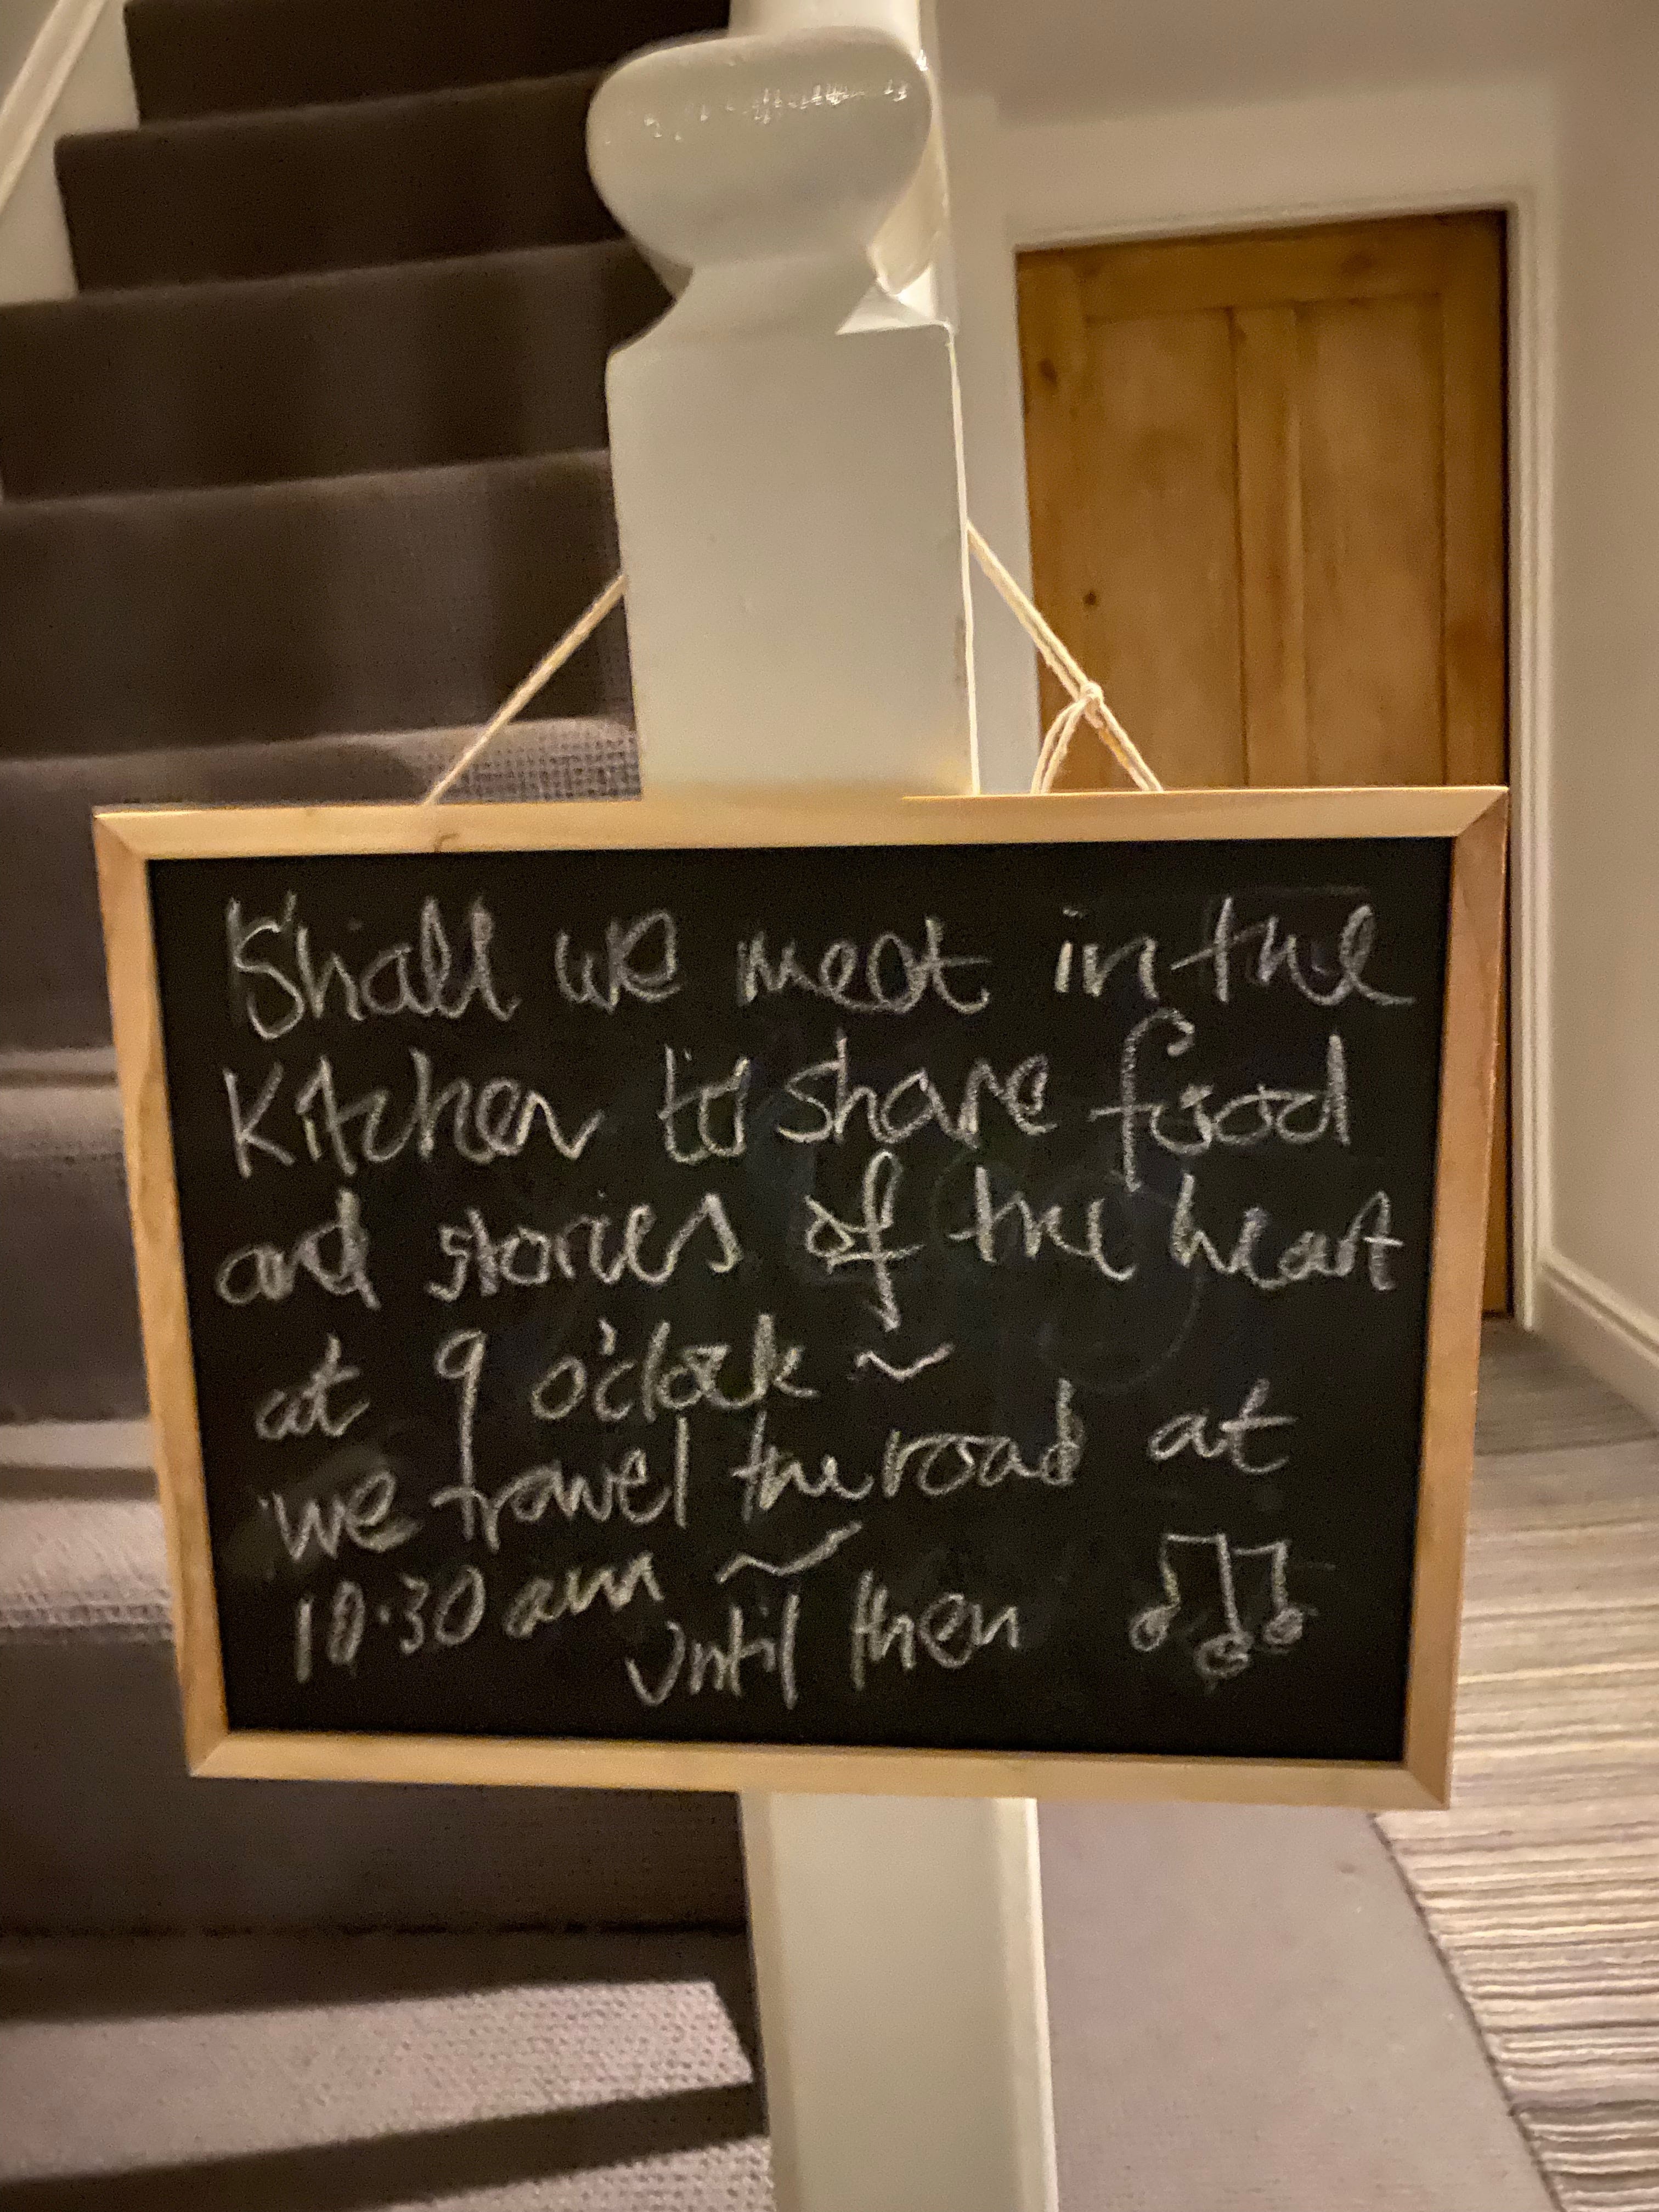 Shall we meet in the
Kitchen to share food
and stories of the heart
at 9 o'clock ~
we travel the road at
10.30 am ~
until then